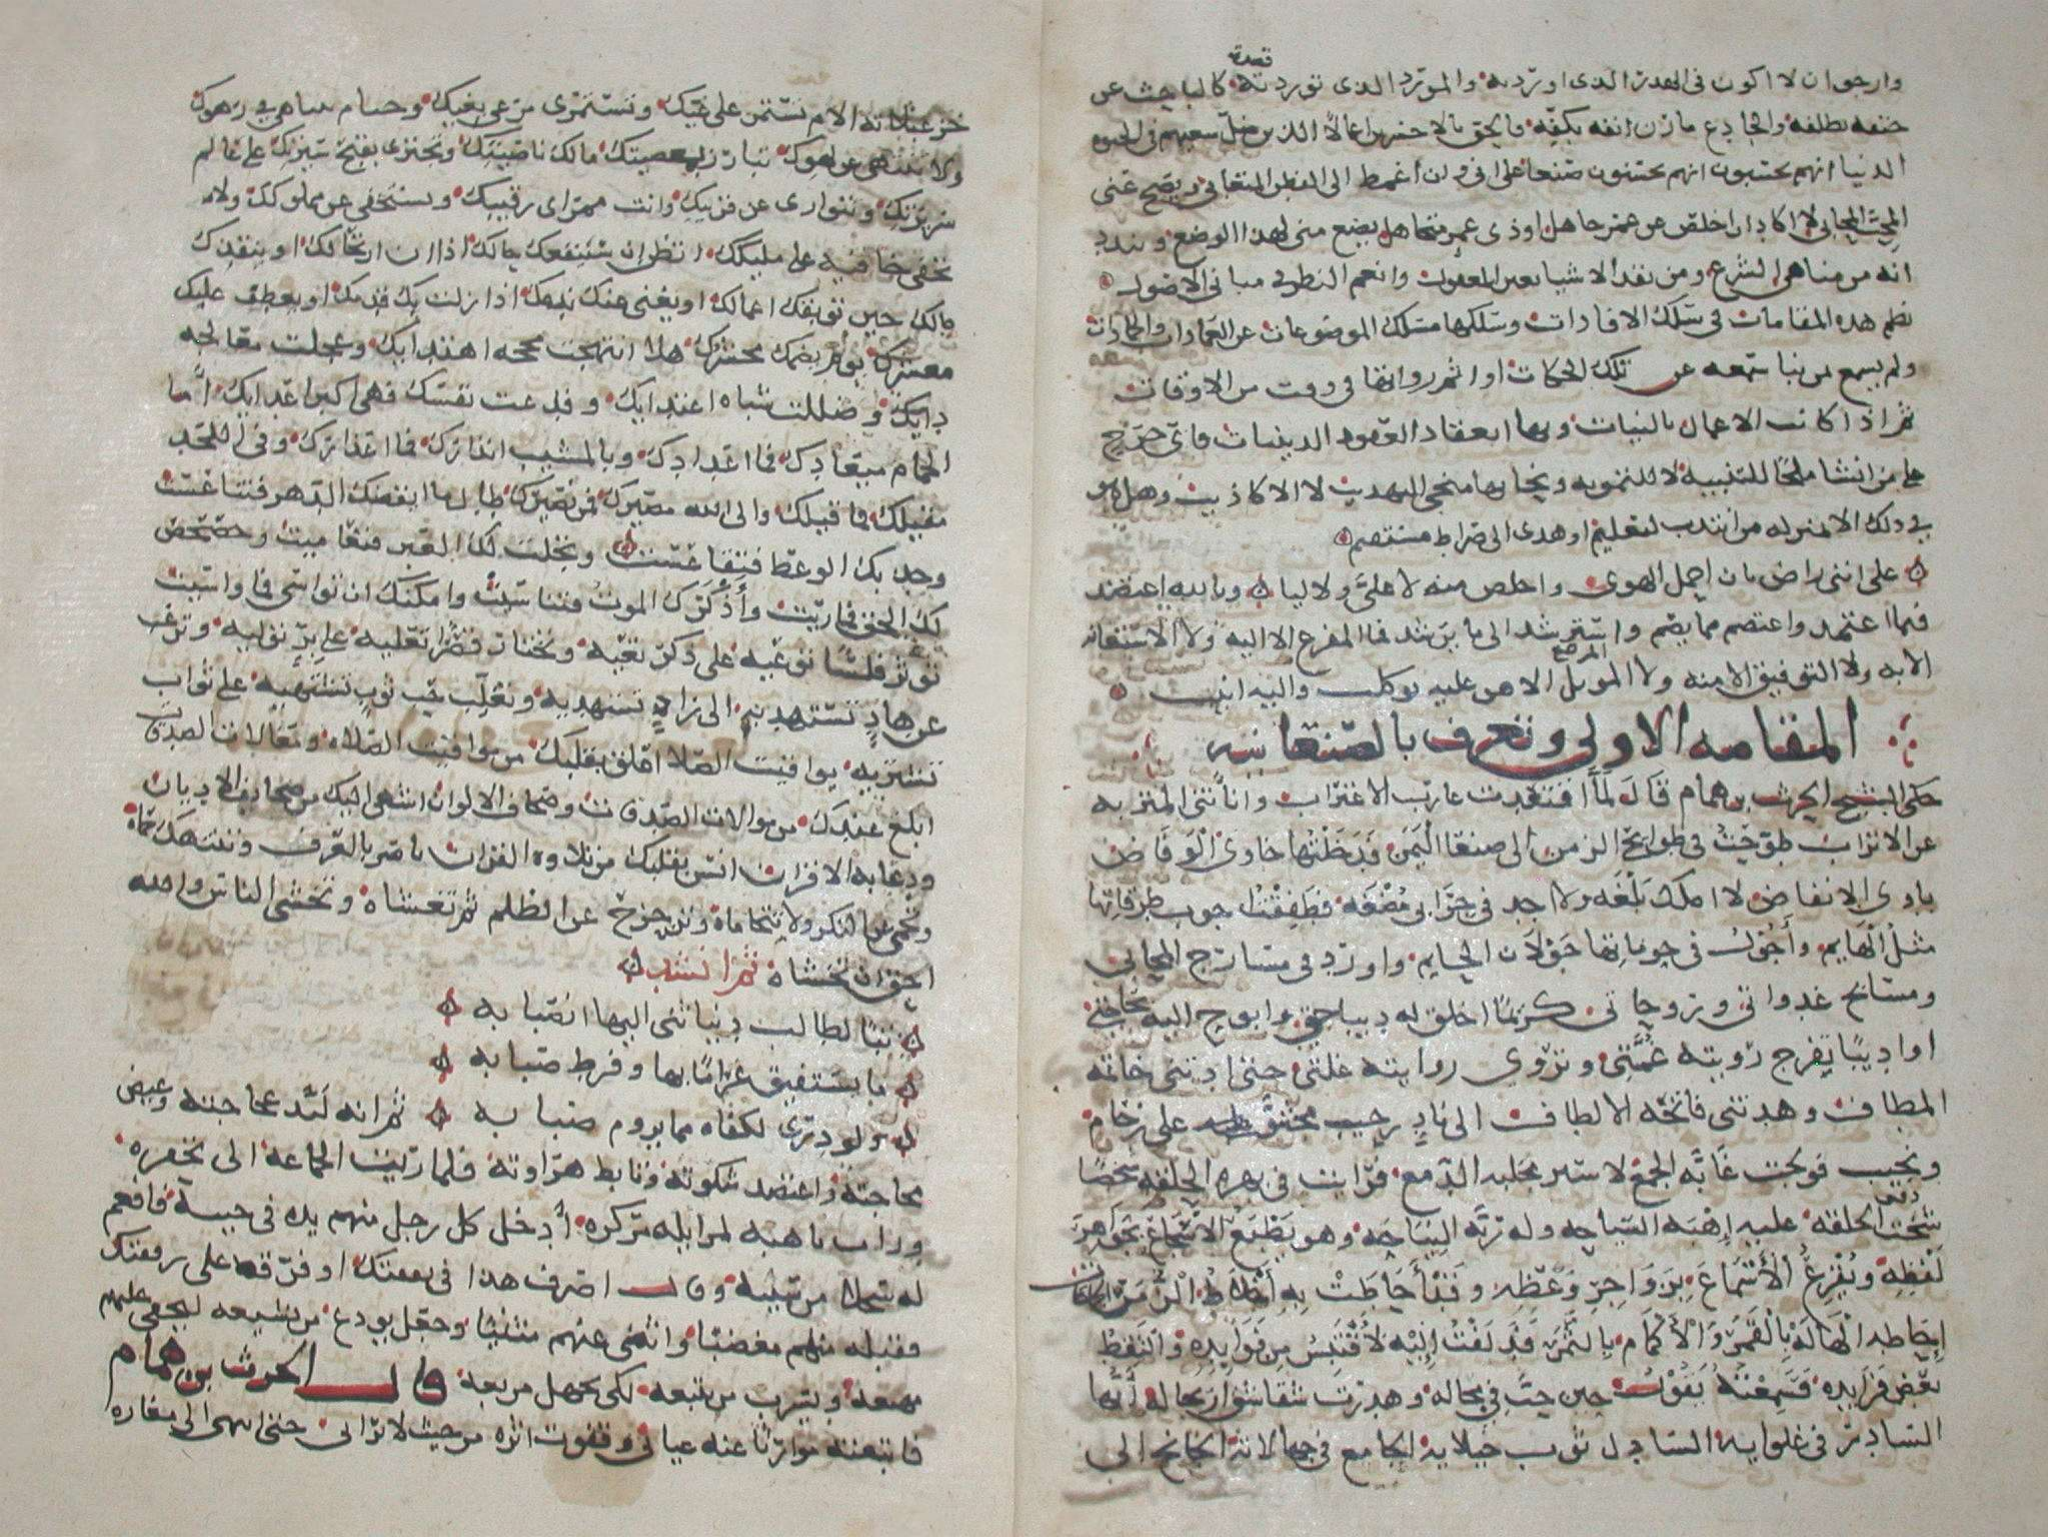 وارجوا ان لا اكون في الهذر الذي اوردته والمورد الذي توردته كالباحث عن
حتفه بظلفه والجادع مارن انفه بكفه فالحق بالاخسرين اعمالا الذين ضل سعيهم في الحيوه
الدنيا وهم يحسبون انهم يحسنون صنعا على اني وان اغمض الى الفطن المتغابي ونضح عني
المحب المحابي لا اكاد ان اخلص من غمر جاهل او ذي غمر متجاهل يضع مني لهذا الوضع ويندد
انه من مناهي الشرع ومن نقد الاشيا بعين المعقول وانعم النظر في مباني الاصول
نظم هذه المقامات في سلك الافادات وسلكها مسلك الموضوعات عن العجماوات والجمادات
ولم يسمع بمن نبا سمعه عن تلك الحكايات او اثم رواتها في وقت من الاوقات
ثم اذا كانت الاعمال بالنيات وبها انعقاد العقود الدينيات فاي حرج
على من انشا ملحا للتنبيه لا للتمويه ونحا بها منحى التهذيب لا الاكاذيب وهل هو
في ذلك الا بمنزله من انتدب لتعليم او هدى الى صراط مستقيم
على انني راض بان احمل الهوى واخلص منه لا علي ولا ليا وبالله اعتضد
فيما اعتمد واعتصم مما يصم واسترشد الى ما يرشد فما المفزع الا اليه ولا الاستعانه
الا به ولا التوفيق الا منه ولا الموئل الا هو عليه توكلت واليه انيب
المقامه الاولى وتعرف بالصنعانيه
حكى الحرث بن همام قال لما اقتعدت غارب الاغتراب وانأتني المتربه
عن الاتراب طوحت بي طوائح الزمن الى صنعا اليمن فدخلتها خاوي الوفاض
بادي الانفاض لا املك بلغه ولا اجد في جرابي مضغه فطفقت اجوب طرقاتها
مثل الهايم واجول في حوماتها جولان الحايم وارود في مسارح لمحاتي
ومسايح غدواتي وروحاتي كريما اخلق له ديباجتي وابوح اليه بحاجتي
او اديبا تفرج رويته غمتي وتروي روايته غلتي حتى ادتني خاتمه
المطاف وهدتني فاتحه الالطاف الى ناد رحيب محتو على زحام
ونحيب فولجت غابه الجمع لاسبر مجلبه الدمع فرايت في بهره الحلقه شخصا
شخت الخلقه عليه اهبه السياحه وله رنه النياحه وهو يطبع الاسجاع بجواهر
لفظه ويقرع الاسماع بزواجر وعظه وقد احاطت به اخلاط الزمر
احاطه الهاله بالقمر والاكمام بالثمر فدلفت اليه لاقتبس من فوايده والتقط
بعض فرايده فسمعته يقول حين خب في مجاله وهدرت شقاشق ارتجاله ايها
السادر في غلوايه السادل ثوب خيلايه الجامح في جهالاته الجانح الى
خزعبلاته الام تستمر على غيك وتستمري مرعى بغيك وحتام تتناهى في زهوك
ولا تنتهي عن لهوك تبارز بمعصيتك مالك ناصيتك وتجتري بقبح سيرتك على عالم
سريرتك وتتوارى عن قريبك وانت بمراى رقيبك وتستخفي عن مملوكك ولا
تخفى خافيه على مليكك اتظن ان ستنفعك حالك اذا ان ارتحالك او ينقذك
مالك حين توبقك اعمالك او يغني عنك ندمك اذا زلت بك قدمك او يعطف عليك
معشرك يوم يضمك محشرك هلا انتهجت محجه اهتدايك وعجلت معالجه
دايك وفللت شباه اعتدايك وقدعت نفسك فهي اكبر اعدايك اما
الحمام ميعادك فما اعدادك وبالمشيب انذارك فما اعذارك وفي اللحد
مقيلك فما قيلك والى الله مصيرك فمن نصيرك طالما ايقظك الدهر فتناعست
وجذبك الوعظ فتقاعست وتجلت لك العبر فتعاميت وحصحص
لك الحق فماريت واذكرك الموت فتناسيت وامكنك ان تواسي فما واسيت
توثر فلسا توعيه على ذكر تعيه وتختار قصرا تعليه على بر توليه وترغب
عن هاد تستهديه الى زاد تستهديه وتغلب حب ثوب تشتهيه على ثواب
تشتريه يواقيت الصلات اعلق بقلبك من مواقيت الصلاه ومغالات الصدقات
ابلغ عندك من موالات الصدقات وصحاف الالوان اشهى اليك من صحايف الاديان
ودعابه الاقران انس بقلبك من تلاوه القران تامر بالعرف وتنتهك حماه
وتحمي عن النكر ولا تتحاماه وتزحزح عن الظلم ثم تغشاه وتخشى الناس والله
احق ان تخشاه ثم انشد
تبا لطالب دنيا ثنى اليها انصبابه
ما يستفيق غراما بها وفرط صبابه
ولو درى لكفاه مما يروم صبابه ثم انه لبد عجاجته وغيض
مجاجته واعتضد شكوته وتابط هراوته فلما رنت الجماعه الى تحفزه
ورات تاهبه لمزايله مركزه ادخل كل رجل منهم يده في جيبه فافعم
له سجلا من سيبه وقال اصرف هذا في نفقتك او فرقه على رفقتك
فقبله منهم مغضيا وانثنى عنهم مثنيا وجعل يودع من يشيعه ليخفى عليهم
مهيعه ويسرب من يتبعه لكي يجهل مربعه قال الحرث بن همام
فاتبعته مواريا عنه عياني وقفوت اثره من حيث لا يراني حتى انتهى الى مغاره